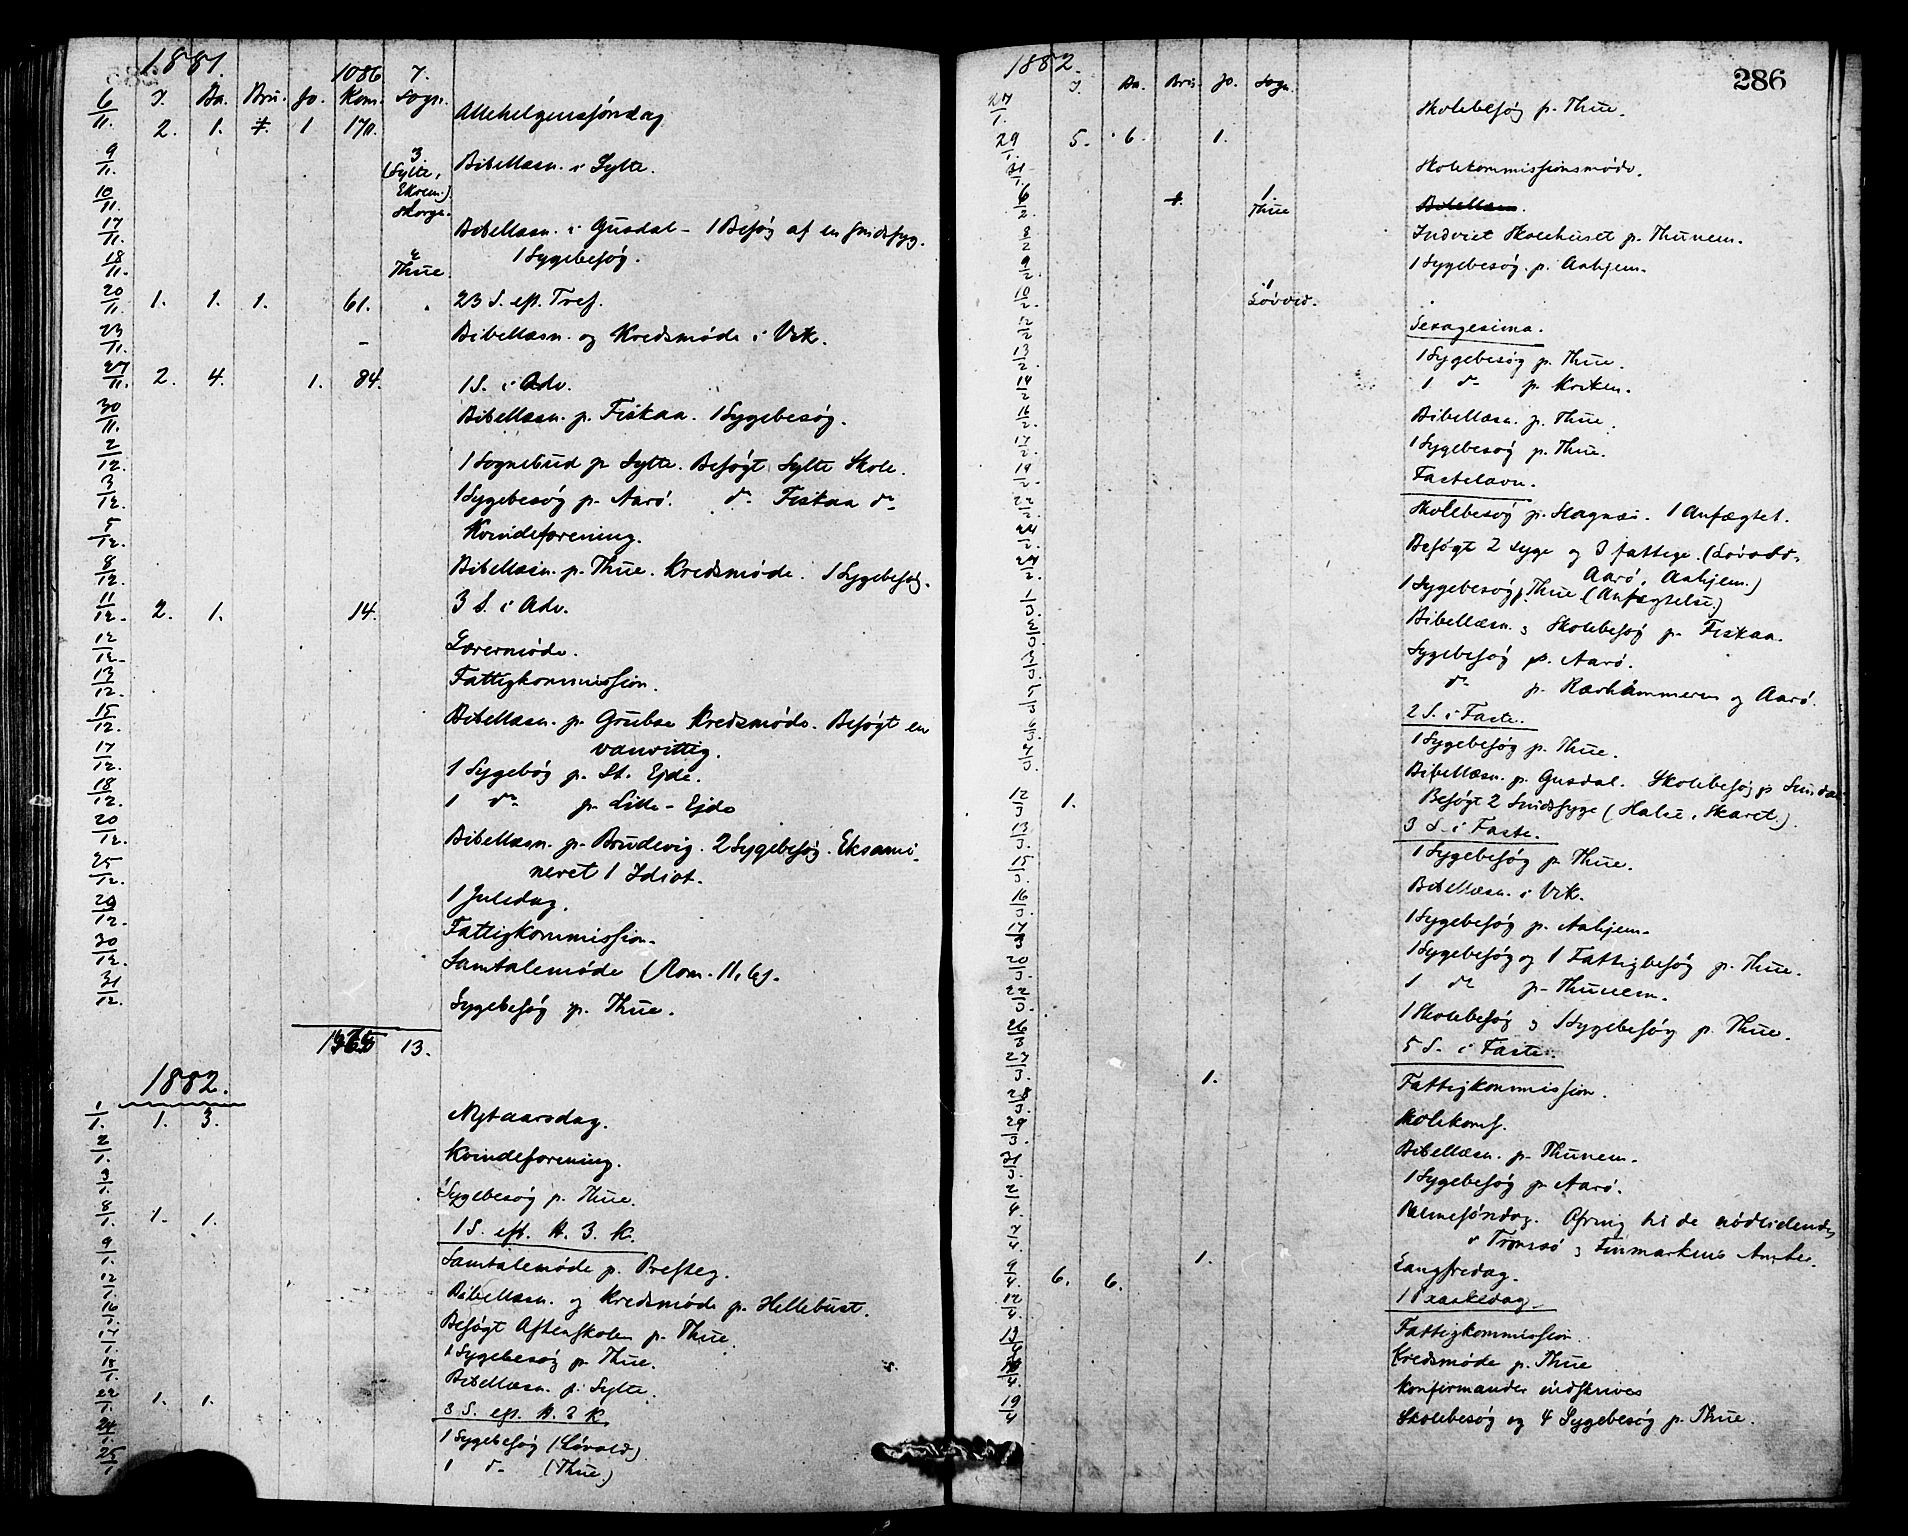 1881.
1086 7.
6/11. T. Ba. Bru. Jo. Kom. Sogn.
2. 1. 1. 170. Allehelgenssøndag
9/11. 3 (Sylte, Ekrem.) Bibellæsn. i Sylte.
10/11. Skorge.
17/11. Bibellæsn. i Gusdal - 1 Besøg af en sindssyg.
18/11. Thue 1 Sygebesøg.
20/11. 1. 1. 1. 61. 23 S. eft. Tref.
23/11. Bibellæsn. og Kredsmøde i Vik.
27/11. 2. 4. 1. 84. 1 S. i Adv.
30/11. Bibellæsn. p. Fiskaa. 1 Sygebesøg.
2/12. 1 Sognebud p. Sylte. Besøgt Sylte Skole.
3/12. 1 Sygebesøg p. Aarø. do Fiskaa do
5/12. Kvindeforening.
8/12. Bibellæsn. p. Thue. Kredsmøde. 1 Sygebesøg.
11/12. 2. 1. 14. 3 S. i Adv.
12/12. Lærermøde.
13/12. Fattigkommission.
15/12. Bibellæsn. p. Grubse Kredsmøde. Besøgt en
vanvittig.
17/12. 1 Sygebøg p. St. Ejde.
18/12. 1 do p. Lille-Ejde
20/12. Bibellæsn. p. Brudevig. 2 Sygebesøg. Eksami-
neret 1 Idiot.
25/12. 1 Juledag.
29/12. Fattigkommission.
30/12. Samtalemøde (Rom. 11, 6).
31/12. Sygebesøg p. Thue.
13.
1882.
1/1. 1. 3. Nytaarsdag.
2/1. Kvindeforening.
3/1. 1 Sygebesøg p. Thue.
8/1. 1. 1. 1 S. eft. H. 3. K.
9/1. Samtalemøde p. Presteg.
12/1. Bibellæsn. og Kredsmøde p. Hellebust.
16/1. Besøgt Aftenskolen p. Thue.
17/1. 1 Sygebesøg p. Thue.
18/1. Bibellæsn. p. Sylte.
22/1. 1. 1. 3 S. eft. H. 3 K
24/1. 1 Sygebesøg (Løvold)
25/1 1 do (Thue.)
1882. 286
T. Ba. Bru. Jo. Sogn.
27/1. Skolebesøg p. Thue.
29/1. 5. 6. 1.
31/1. Skolekommissionsmøde.
6/2. 1. 1. Thue Bibellæsn.
8/2 Indviet Skolehuset p. Thunem.
9/2. 1 Sygebesøg p. Aahjem.
10/2. 1 Løvold.
12/2 Sexagesima.
13/2. 1 Sygebesøg p. Thue.
14/2. 1 do p. Kviken.
16/2. Bibellæsn. p. Thue.
17/2. 1 Sygebesøg p. Thue.
19/2. Fastelavn.
22/2. Skolebesøg p. Hagnæs. 1 Anfægtet.
Besøgt 2 syge og 3 fattige. (Løvold-
Aarø, Aahjem.)
1 Sygebesøg p. Thue (Anfægtelse)
Bibellæsn. & Skolebesøg p. Fiskaa.
Sygebesøg p. Aarø.
do p. Rærhammeren og Aarø.
2 S. i Faste.
1 Sygebesøg p. Thue.
Bibellæsn. p. Gusdal. Skolebesøg p. Sundal
Besøgt 2 Sindssyge (Halse, Skaret.)
12/3 1. 3 S. i Faste.
13/3. 1 Sygebesøg p. Thue.
15/3. Bibellæsn. i Vik.
16/3. 1 Sygebesøg p. Aahjem.
17/3 1 Sygebesøg og 1 Fattigbesøg p. Thue.
20/3. 1 do p. Thunem.
22/3. 1 Skolebesøg & 1 Sygebesøg p. Thue.
26/3 5 S. i Faste.
27/3. 1. Fattigkommission.
28/3. Skolekoms.
29/3. Bibellæsn. p. Thunem.
31/3. 1 Sygebesøg p. Aarø.
2/4. Palmesøndag. Ofring til de nødlidende
i Tromsø & Finmarkens Amter.
7/4. 1. Langfredag.
9/4. 6. 6. 1 Paaskedag.
12/4. Fattigkommission.
13/4 Kredsmøde p. Thue
Konfirmander indskrives
19/4 Skolebesøg og 4 Sygebesøg p. Thue.